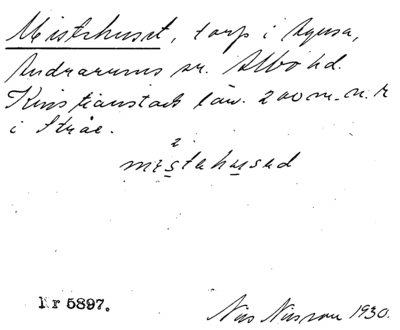 Mistehuset, torp i Agusa,
Andrarums sn. Albo hd.
Kristianstads län. 200 m. n. r
i Stråe.
2
mestahused
Nr 5897. Nils Nilsson 1930.